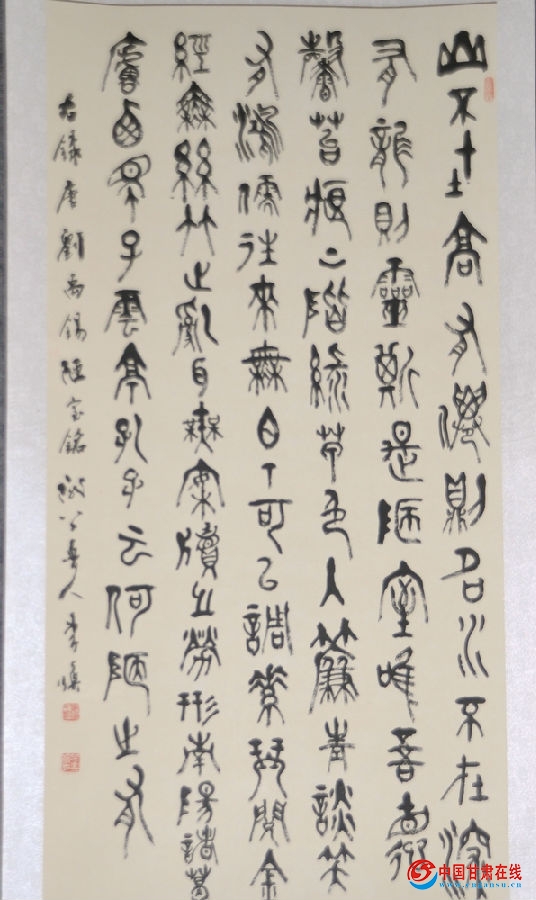 山不在高有僊則名水不在深
有龍則靈斯是陋室唯吾德
馨苔痕上階綠草色入簾青談笑
有鴻儒往來無白丁可以調素琴閱金
經無絲竹之亂耳無案牘之勞形南陽諸葛
廬西蜀子雲亭孔子云何陋之有
右錄唐劉禹錫陋室銘
中国甘肃在线